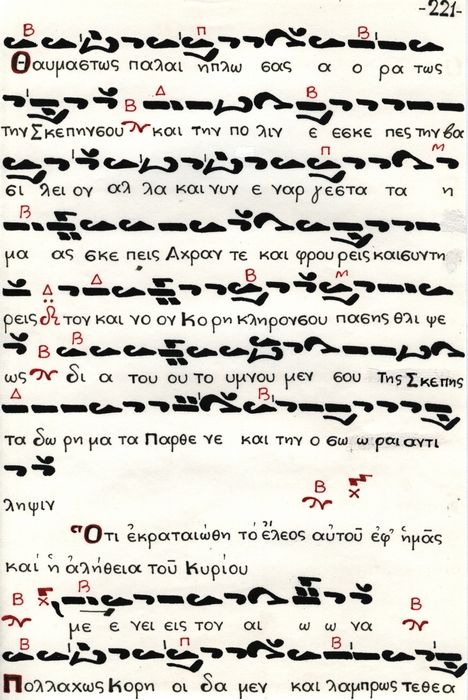 -221-
Β Π Β
Θαυμαστως παλαι ηπλω σας α ο ρα τως
Δ Β
την Σκεπην σου Β και την πο λιν ε σσκε πες την βα
Π Μ
σι λει ον αλ λα και νυν ε ναρ γεστα τα η
Β
μα ας σκε πεις Αχραν τε και φρου ρεις και συντη
Δ Δ Β Μ
ρεις τον και νο ον Κο ρη κληρον σου πασης θλι ψε
Β Β
ως δι α του ου το υμνου μεν σου της Σκεπης
Δ Β
τα δω ρη μα τα Παρθε νε και την ο σω ω ραι αντι
ληψιν Β
Ὅτι ἐκραταιώθη τό ἔλεος αὐτοῦ ἐφ' ἡμᾶς
καί ἡ ἀλήθεια τοῦ Κυρίου
Β Β Β
με ε νει εις τον αι ω ω να
Β Π Β
Πολλαχως Κορη οι δα μεν και λαμπρως τεθεα